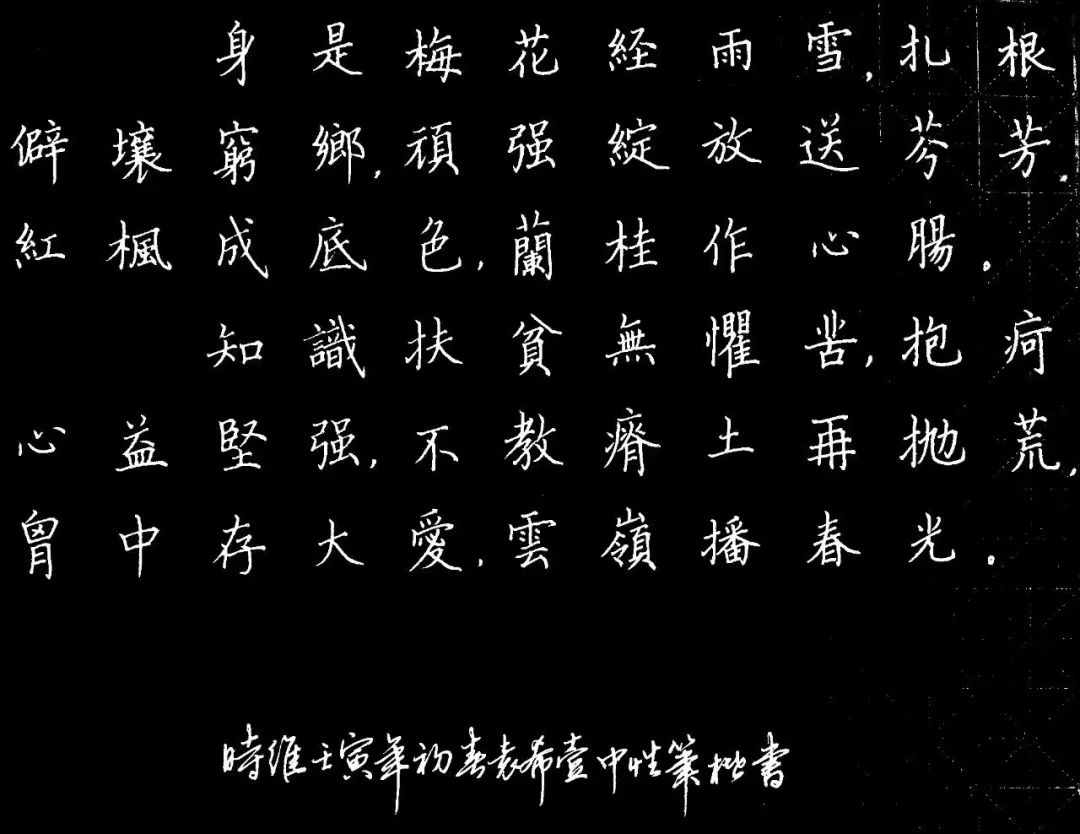 身是梅花経雨雪,扎根
僻壤窮鄉,頑强綻放送芬芳.
紅楓成底色,蘭桂作心腸。
知識扶貧無懼苦,抱疴
心益堅强,不教瘠土再抛荒,
胷中存大愛,雲嶺播春光。
時維壬寅年初春袁希壹中性筆楷書